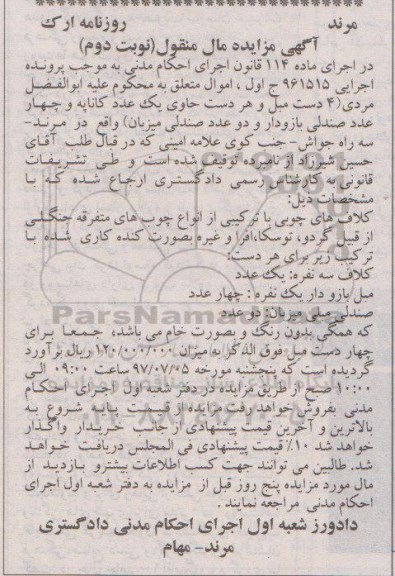 مرند روزنامه ارک
آگهی مزایده مال منقول(نوبت دوم)
در اجرای ماده ۱۱۴ قانون اجرای احکام مدنی به موجب پرونده
اجرایی ۹۶۱۵۱۵ ح اول ، اموال متعلق به محکوم علیه ابوالفضل
مردی(۴ دست مبل و هر دست حاوی یک عدد کاناپه و چهار
عدد صندلی بازودار و دو عدد صندلی میزبان) واقع در مرند-
سه راه جواش- جنب کوی علامه امینی که در قبال طلب آقای
حسین شیرزاد از نامبرده توقیف شده است و طی تشریفات
قانونی به کارشناس رسمی دادگستری ارجاع شده که با
مشخصات ذیل:
کلاف های چوبی با ترکیبی از انواع چوب های متفرقه جنگلی
از قبیل گردو، توسکا،افرا و غیره بصورت کنده کاری شده با
ترکیب زیر برای هر دست:
کلاف سه نفره: یک عدد
مبل بازو دار یک نفره : چهار عدد
صندلی مبلی میزبان: دو عدد
که همگی بدون رنگ و بصورت خام می باشد، جمعا برای
چهار دست مبل فوق الذکر به میزان ۱۲۰/۰۰۰/۰۰۰ ریال برآورد
گردیده است که پنجشنبه مورخه ۹۷/۰۷/۰۵ ساعت ۰۹:۰۰ الی
۱۰:۰۰ صبح از طریق مزایده در دفتر شعبه اول اجرای احکام
مدنی بفروش خواهد رفت مزایده از قیمت پایه شروع به
بالاترین و آخرین قیمت پیشنهادی از جانب خریدار واگذار
خواهد شد ۱۰٪ قیمت پیشنهادی فی المجلس دریافت خواهد
شد. طالبین می توانند جهت کسب اطلاعات بیشترو بازدید از
مال مورد مزایده پنج روز قبل از مزایده به دفتر شعبه اول اجرای
احکام مدنی مراجعه نمایند .
دادورز شعبه اول اجرای احکام مدنی دادگستری
مرند- مهام
ParsNamadData